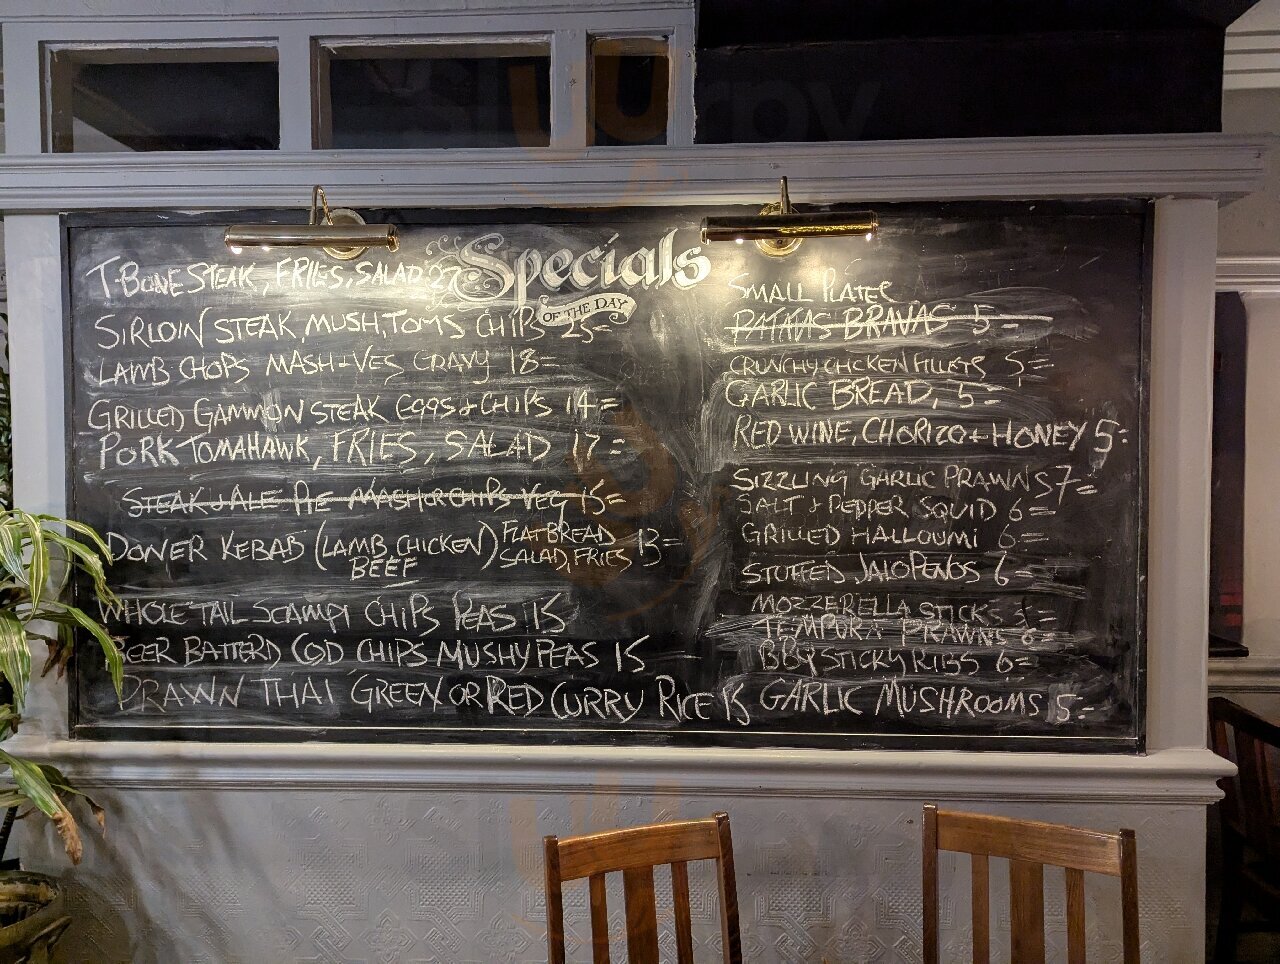 Specials
OF THE DAY
T-BONE STEAK, FRIES, SALAD 27
SIRLOIN STEAK, MUSH, TOMS CHIPS 25=
LAMB CHOPS MASH + VEG GRAVY 18=
GRILLED GAMMON STEAK EGGS + CHIPS 14=
PORK TOMAHAWK, FRIES, SALAD 17=
STEAK & ALE PIE MASH OR CHIPS VEG 15=
DONER KEBAB (LAMB, CHICKEN) FLATBREAD 13=
BEEF SALAD, FRIES
WHOLETAIL SCAMPI CHIPS PEAS 15
BEER BATTERD COD CHIPS MUSHY PEAS 15
PRAWN THAI GREEN OR RED CURRY RICE 15
SMALL PLATES
PATATAS BRAVAS 5=
CRUNCHY CHICKEN FILLETS 5=
GARLIC BREAD, 5=
RED WINE, CHORIZO + HONEY 5=
SIZZLING GARLIC PRAWNS 7=
SALT + PEPPER SQUID 6=
GRILLED HALLOUMI 6=
STUFFED JALOPENOS 6=
MOZZERELLA STICKS 5=
TEMPURA PRAWNS 6=
BBQ STICKY RIBS 6=
GARLIC MUSHROOMS 5=